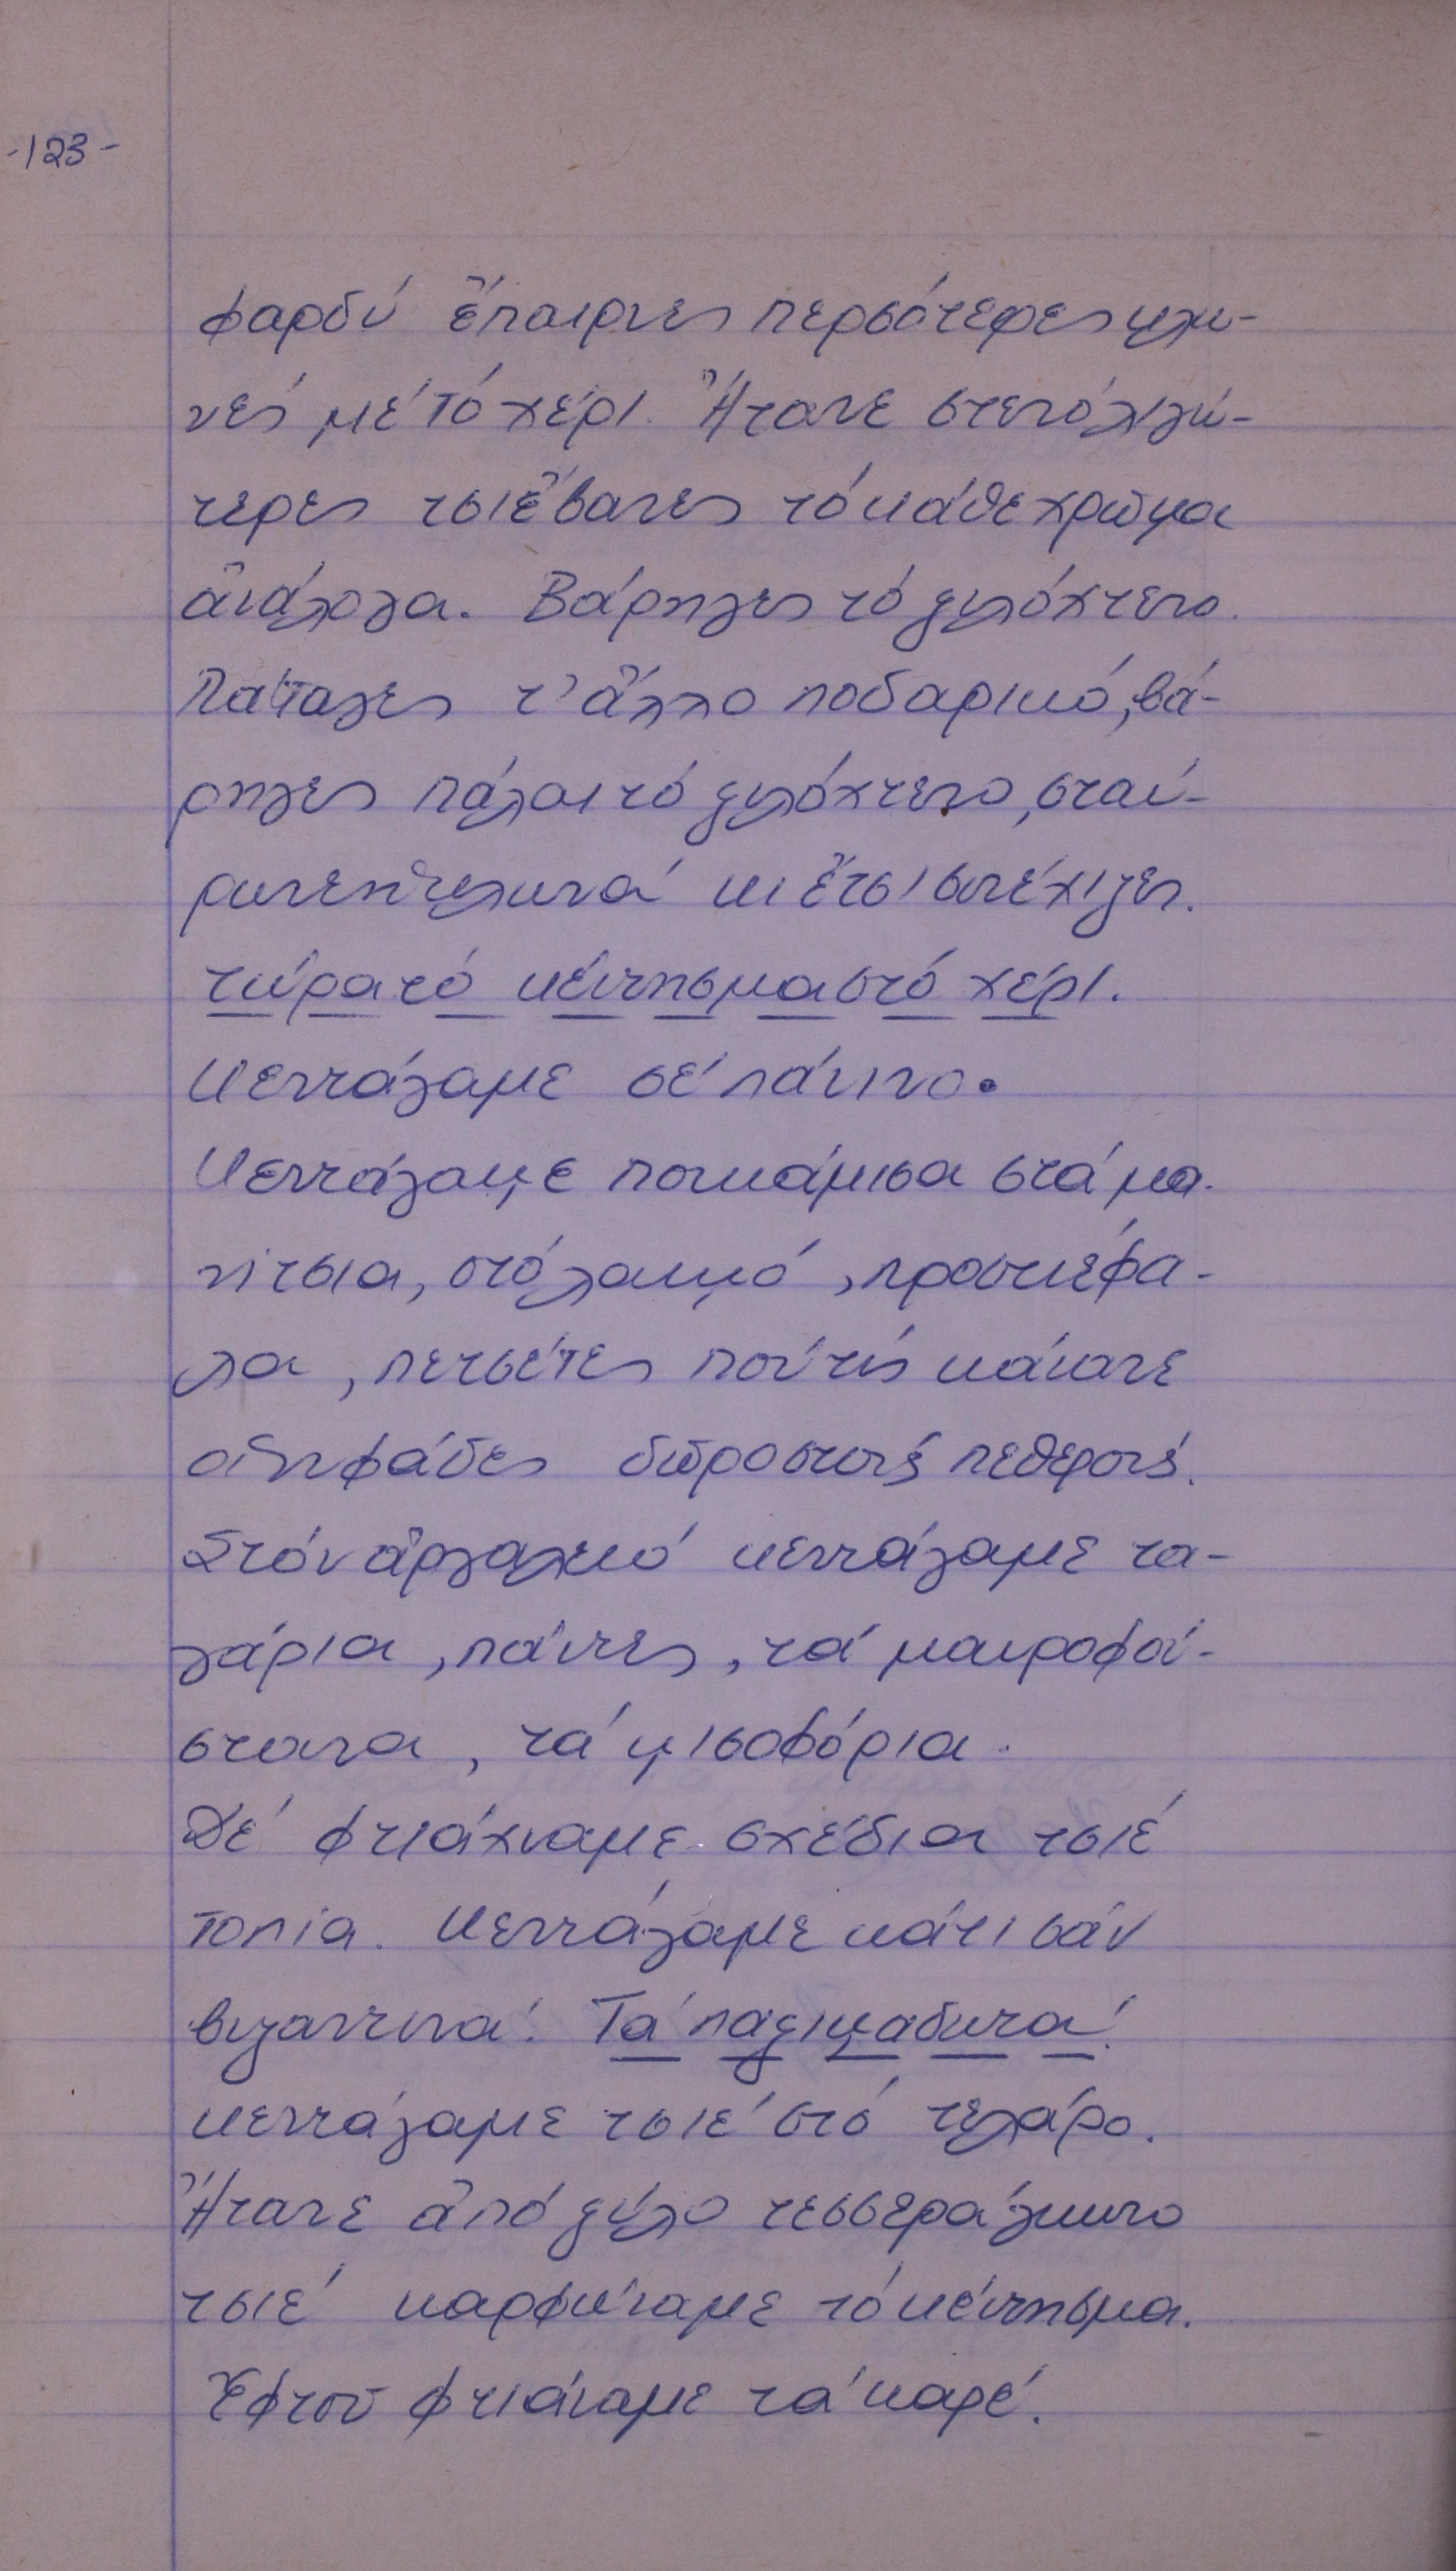 -123-
φαρδύ ἔπαιρνες περσότερες κλω-
νές μέ τό χέρι. Ἤτανε στενό λιγώ-
τερες τσιέ ἔβανες τό κάθε χρῶμα
ἀνάλογα. Βάρηγες τό ξυλόχτενο.
Πάταγες τ' ἄλλο ποδαρικό, βά-
ρηγες πάλαι τό ξυλόχτενο, σταύ-
ρωνε κλωνά κι ἔτσι συνέχιζες.
τώρα τό κέντησμα στό χέρι.
Κεντάγαμε σέ πάνινο.
Κεντάγαμε ποικάμισα στά μα-
νίτσια, στό λαιμό, προστσέφα-
λα, πετσέτες πού τίς κάνανε
οἱ νυφάδες δῶρο στούς πεθερούς.
Στόν ἀργαλειό κεντάγαμε τα-
γάρια, πάντες, τά μακροφού-
στανα, τά μισοφόρια.
Δέ φτιάχναμε σχέδια τσιέ
τοπία. Κεντάγαμε κάτι σάν
βιζαντινά! Τά παξιμαδωτά!
κεντάγαμε τσιέ στό τελάρο.
Ἤτανε ἀπό ξύλο τεσσεράγωνο
τσιέ καρφώναμε τό κέντησμα.
Ἐφτοῦ φτιάναμε τά καρέ.